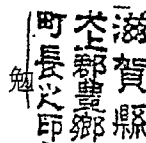 滋賀縣
犬上郡豊郷
町長之印
勉